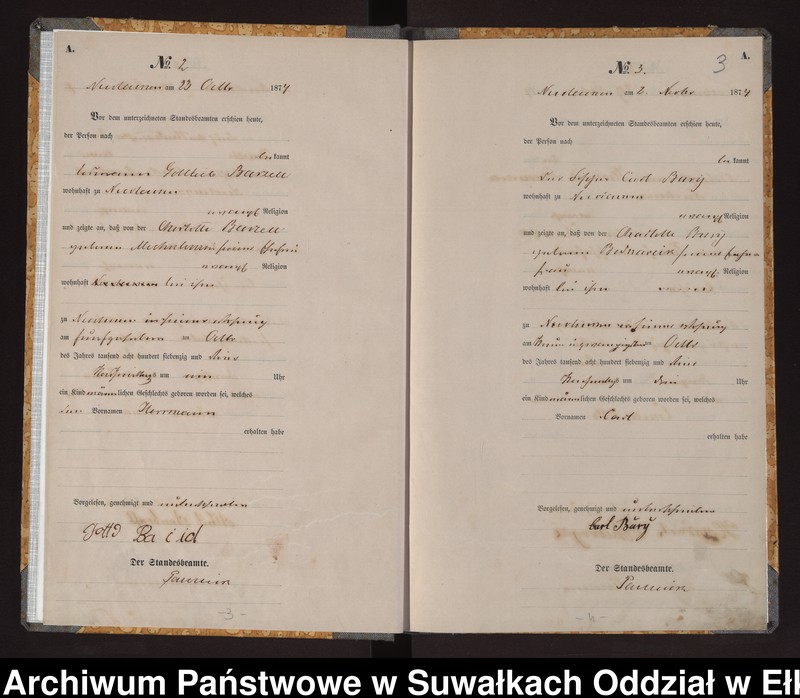 A.
No. 2
am 23 Octbr 1874
Vor dem unterzeichneten Standesbeamten erschien heute,
der Person nach
bekannt
Gottlieb Barzell
wohnhaft zu
evangl Religion
und zeigte an, daß von der Charlotte Barzell
geborene seine Ehefrau
evangl Religion
wohnhaft bei ihm
zu in seiner Wohnung
am fünfzehnten Octbr
des Jahres tausend acht hundert siebenzig und
Nachmittags um ein Uhr
ein Kind männlichen Geschlechts geboren worden sei, welches
Vornamen Herrmann
erhalten habe
Vorgelesen, genehmigt und unterschrieben
Gottd
Der Standesbeamte.
-3-
A.
3
No. 3.
am 2. Novbr 1874
Vor dem unterzeichneten Standesbeamten erschien heute,
der Person nach
bekannt
Carl Bury
wohnhaft zu
evangl Religion
und zeigte an, daß von der Charlotte Bury
geborene seine Ehe
frau evangl. Religion
wohnhaft bei ihm
zu in seiner Wohnung
am Octbr
des Jahres tausend acht hundert siebenzig und
Nachmittags um drei Uhr
ein Kind männlichen Geschlechts geboren worden sei, welches
Vornamen Carl
erhalten habe
Vorgelesen, genehmigt und unterschrieben
Carl Bury
Der Standesbeamte.
-4-
Archiwum Państwowe w Suwałkach Oddział w Ełk